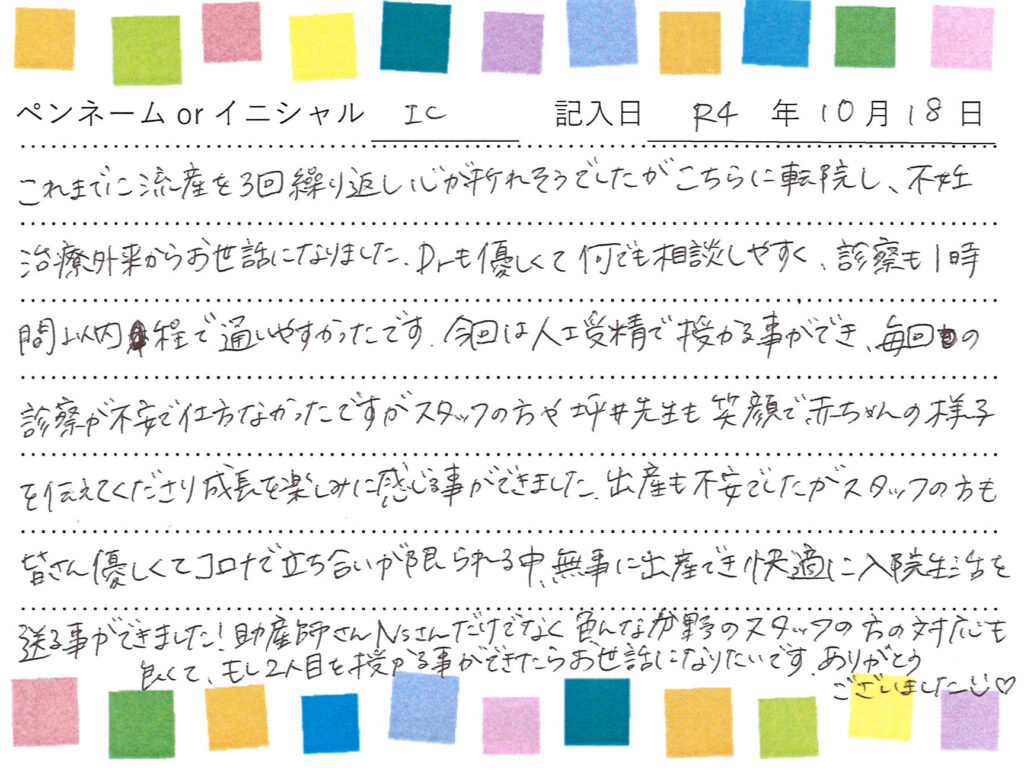 ペンネーム or イニシャル IC 記入日 R4 年 10 月 18 日
これまでに流産を3回繰り返し心が折れそうでしたがこちらに転院し、不妊
治療外来からお世話になりました。Drも優しくて何でも相談しやすく、診察も1時
間以内程で通いやすかったです。今回は人工受精で授かる事ができ、毎回の
診察が不安で仕方なかったですがスタッフの方や坪井先生も笑顔で赤ちゃんの様子
を伝えてくださり成長を楽しみに感じる事ができました。出産も不安でしたがスタッフの方も
皆さん優しくてコロナで立ち合いが限られる中、無事に出産でき快適に入院生活を
送る事ができました!助産師さんNsさんだけでなく色んな分野のスタッフの方の対応も
良くて、もし2人目を授かる事ができたらお世話になりたいです。ありがとう
ございました♡